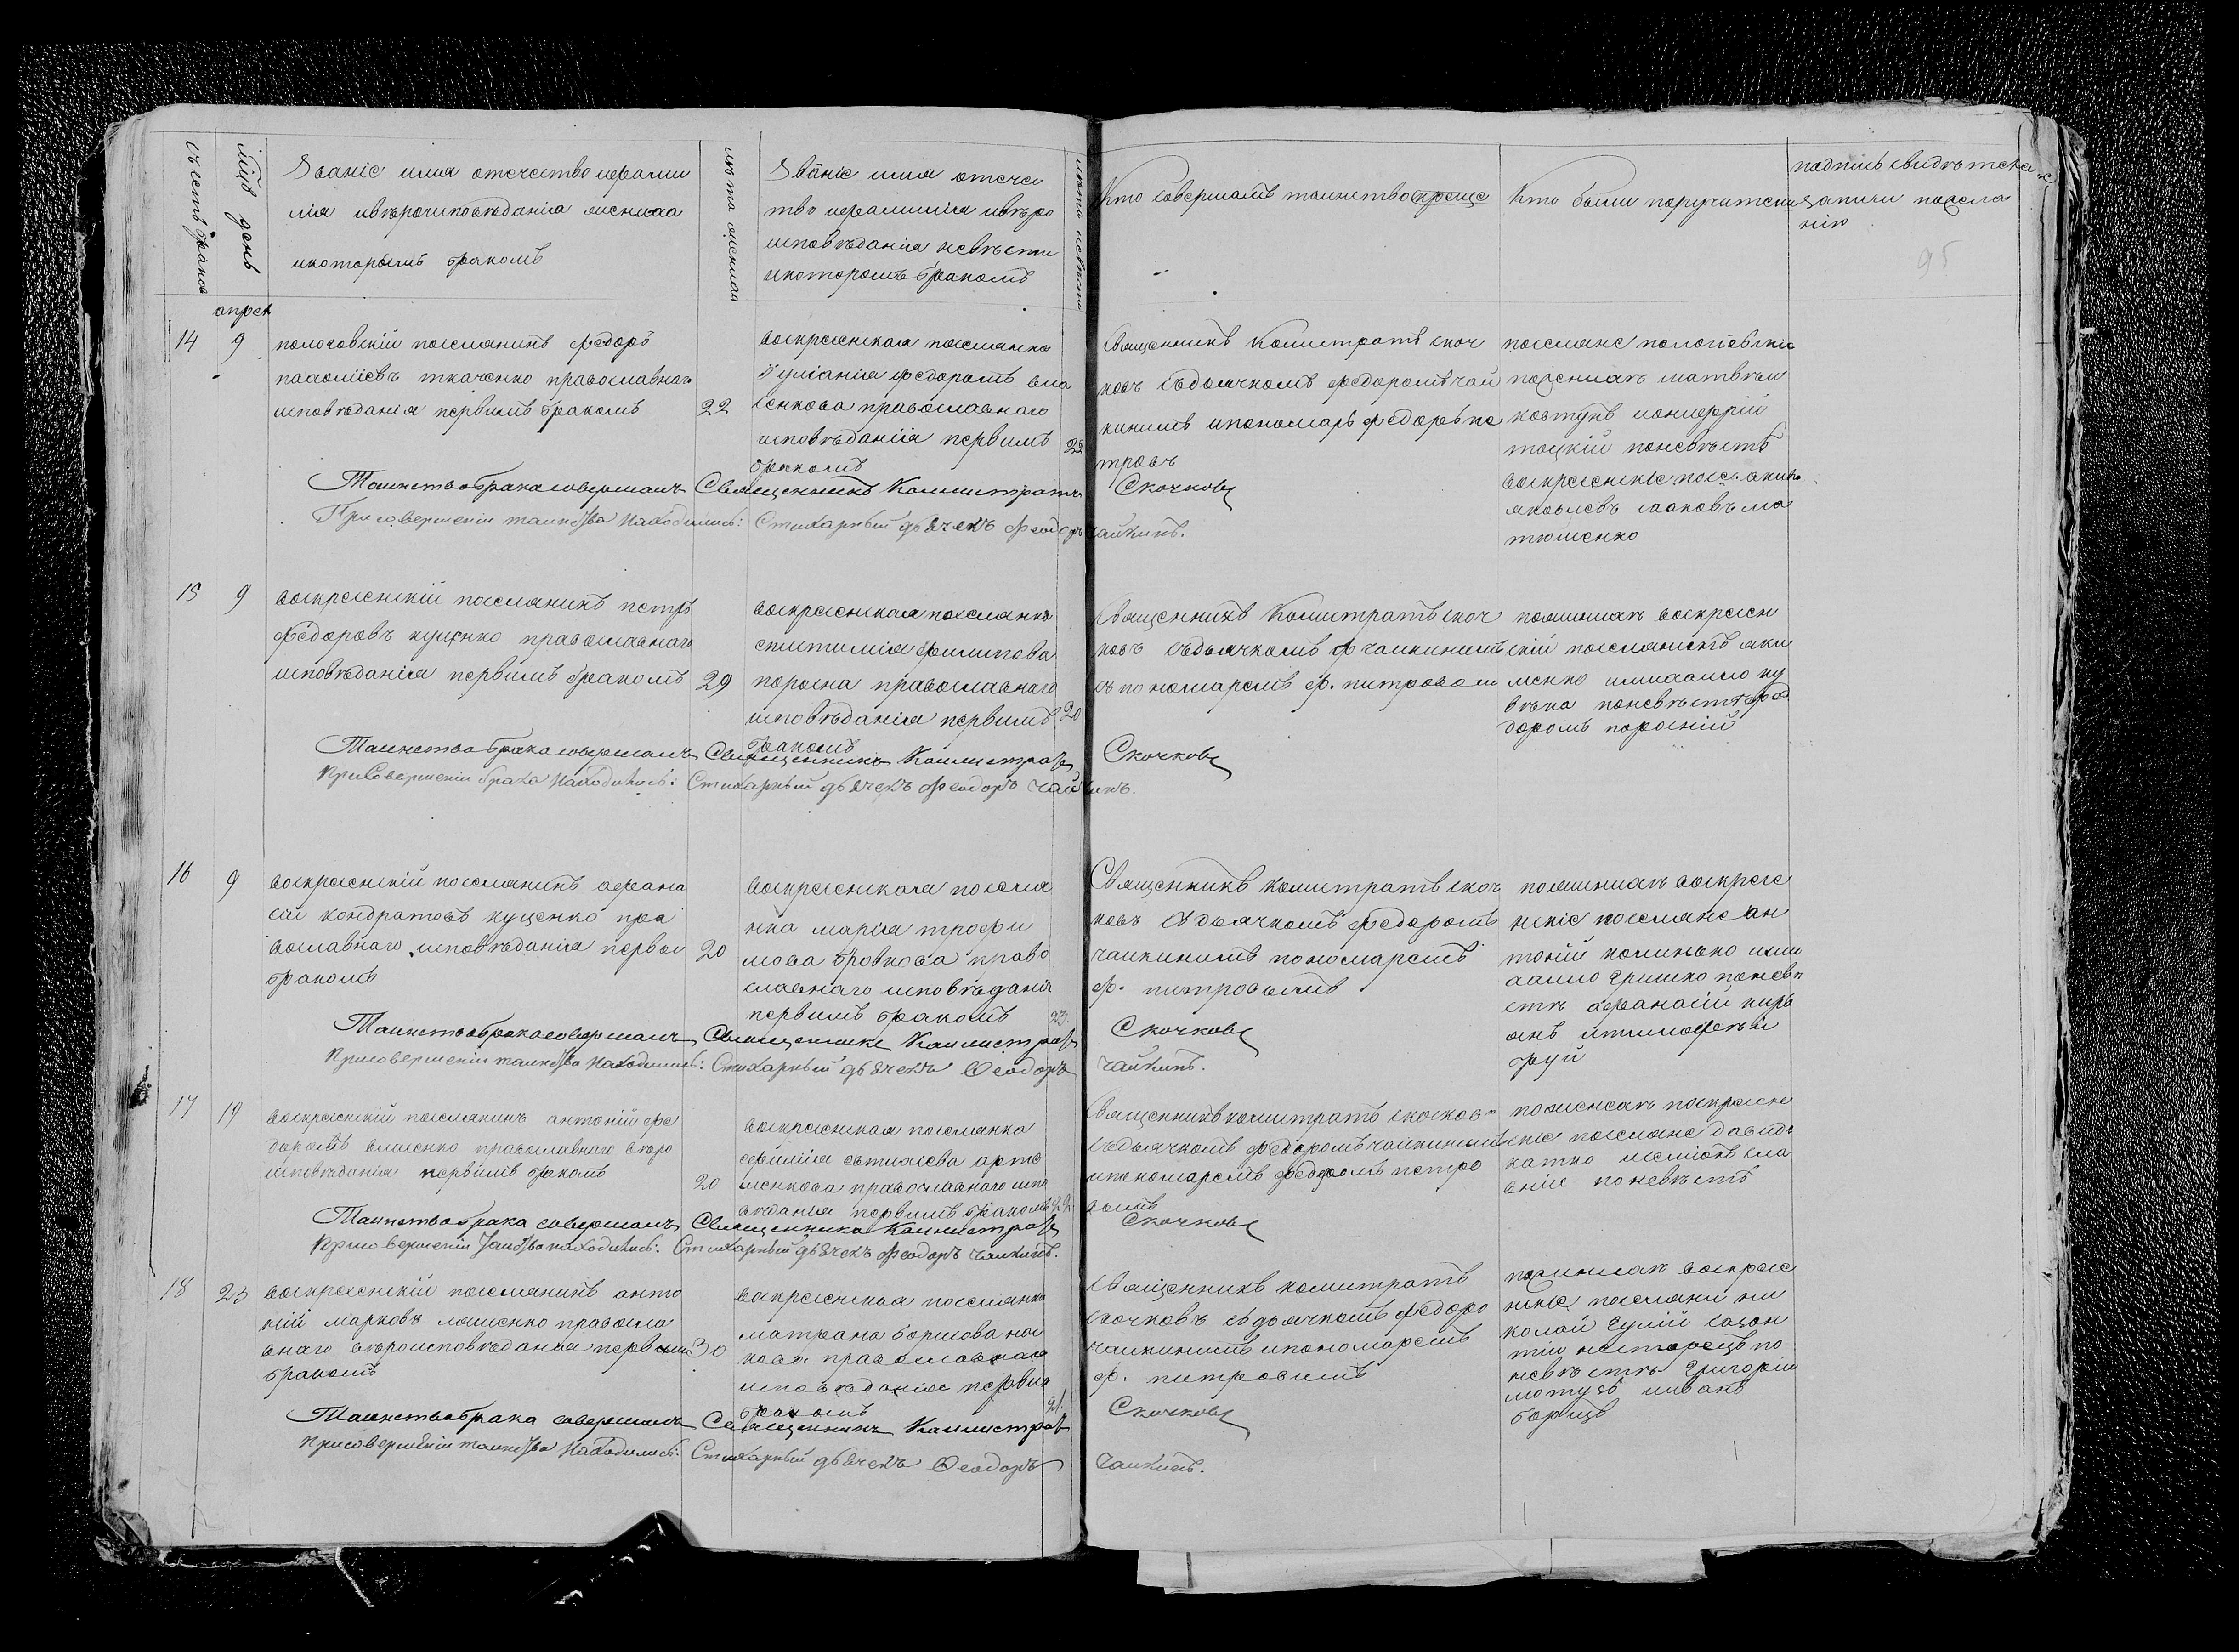 счетъ браковъ
мцъ день
Званіе имя отечество и фами
лія и вѣроисповѣданія жениха
и которымъ бракомъ
лѣта жениха
Званіе имя отече
тво и фамилія и вѣро
исповѣданія невѣсти
и которомъ бракомъ
лѣта невѣсти
Кто совершалъ таинство креще
Кто были поручители
подпись свидѣтеле
записи по жела
нію
95
апрел
14 9
пологовскій поселянинъ федоръ
пахоміевъ ткаченко православнаго
исповѣданія первимъ бракомъ
22
воскресенская поселянка
федоротъ вла
сенкова православнаго
исповѣданіія первимъ
бракомъ
22
Священникъ Калистратъ скоч
ковъ съ дьячкомъ федоромъ чай
кинимъ и пономарь федоръ пе
тровъ
поселяне пологовски
по женихъ матвѣи
ковтунъ
тоцкій по невѣстѣ
воскресенскіе
яковлевъ ма
тюшенко
Таинство брака совершалъ Священникъ Каллистратъ Скочковъ
При совершеніи таинства находились: Стихарный дьячекъ Феодоръ Чайкинъ.
15 9
воскресенскій поселянинъ петръ
федоровъ куценко православнаго
исповѣданія первимъ бракомъ
29
воскресенская поселянка
епистимія филипова
порохна православнаго
исповѣданія первимъ
бракомъ
20
священникъ Калистратъ скоч
ковъ съ дьячкомъ ф чаикинимъ
съ пономаремъ ф. питровом
по жинихѣ воскресен
скій поселянинъ яки
менко и михаило ку
по невѣстѣ фе
доромъ порохній
Таинство брака совершалъ Священникъ Каллистратъ Скочковъ
При Совершеніи брака находились: Стихарный дьячекъ Феодоръ Чайкинъ.
16 9
воскресенскій поселянинъ афана
сіи кондратовъ куценко пра
вославнаго исповѣданія первы
бракомъ
20
воскресенская поселя
нка марія трофи
мова бровкова право
славнаго исповѣданія
первимъ бракомъ
23.
Священникъ калистратъ скоч
ковъ съ дьячкомъ федоромъ
чаикинимъ пономаремъ
ф. питровымъ
по жинихѣ воскресе
нскіе поселяне ан
тоній и ми
хаило Гришко по невѣ
стѣ афанасій
и тимофеѣи
Таинство брака совершалъ Священникъ Каллистратъ Скочковъ
При совершеніи таинства находились: Стихарный дьячекъ Ѳеодоръ Чайкинъ.
17 19
воскресенскій поселянинъ антоній фе
доровъ власенко православнаго вѣро
исповѣданія первимъ бракомъ
20
воскресенская поселянка
арте
менкова православнаго испо
вѣданія первимъ бракомъ
22
Священникъ калистратъ скочков
съ дьячкомъ федоромъ чаикинимъ
и пономаремъ федоромъ петро
вымъ
по женехѣ воскресен
скіе поселяне давидъ
по невѣстѣ
Таинство брака совершалъ Священникъ Каллистратъ Скочковъ
При совершеніи таинства находились: Стихарный дьячекъ Феодоръ Чайкинъ.
18 23
воскресенскій поселянинъ анто
ній марковъ ляшенко правосла
внаго вѣроисповѣданія первим
бракомъ
30
воскресенская поселянка
матрона борисова
православнаго
исповѣданія первим
бракомъ
21.
священникъ калистратъ
скочковъ съ дьячкомъ федоро
чаикинимъ и пономаремъ
ф. питровимъ
по жинихѣ воскресе
нскіе поселяни ни
колай
по
невѣстѣ Григоріи
мотузъ и иванъ
борщъ
Таинство брака совершалъ Священникъ Каллистратъ Скочковъ
При совершеніи таинства находились: Стихарный дьячекъ Ѳеодоръ Чайкинъ.